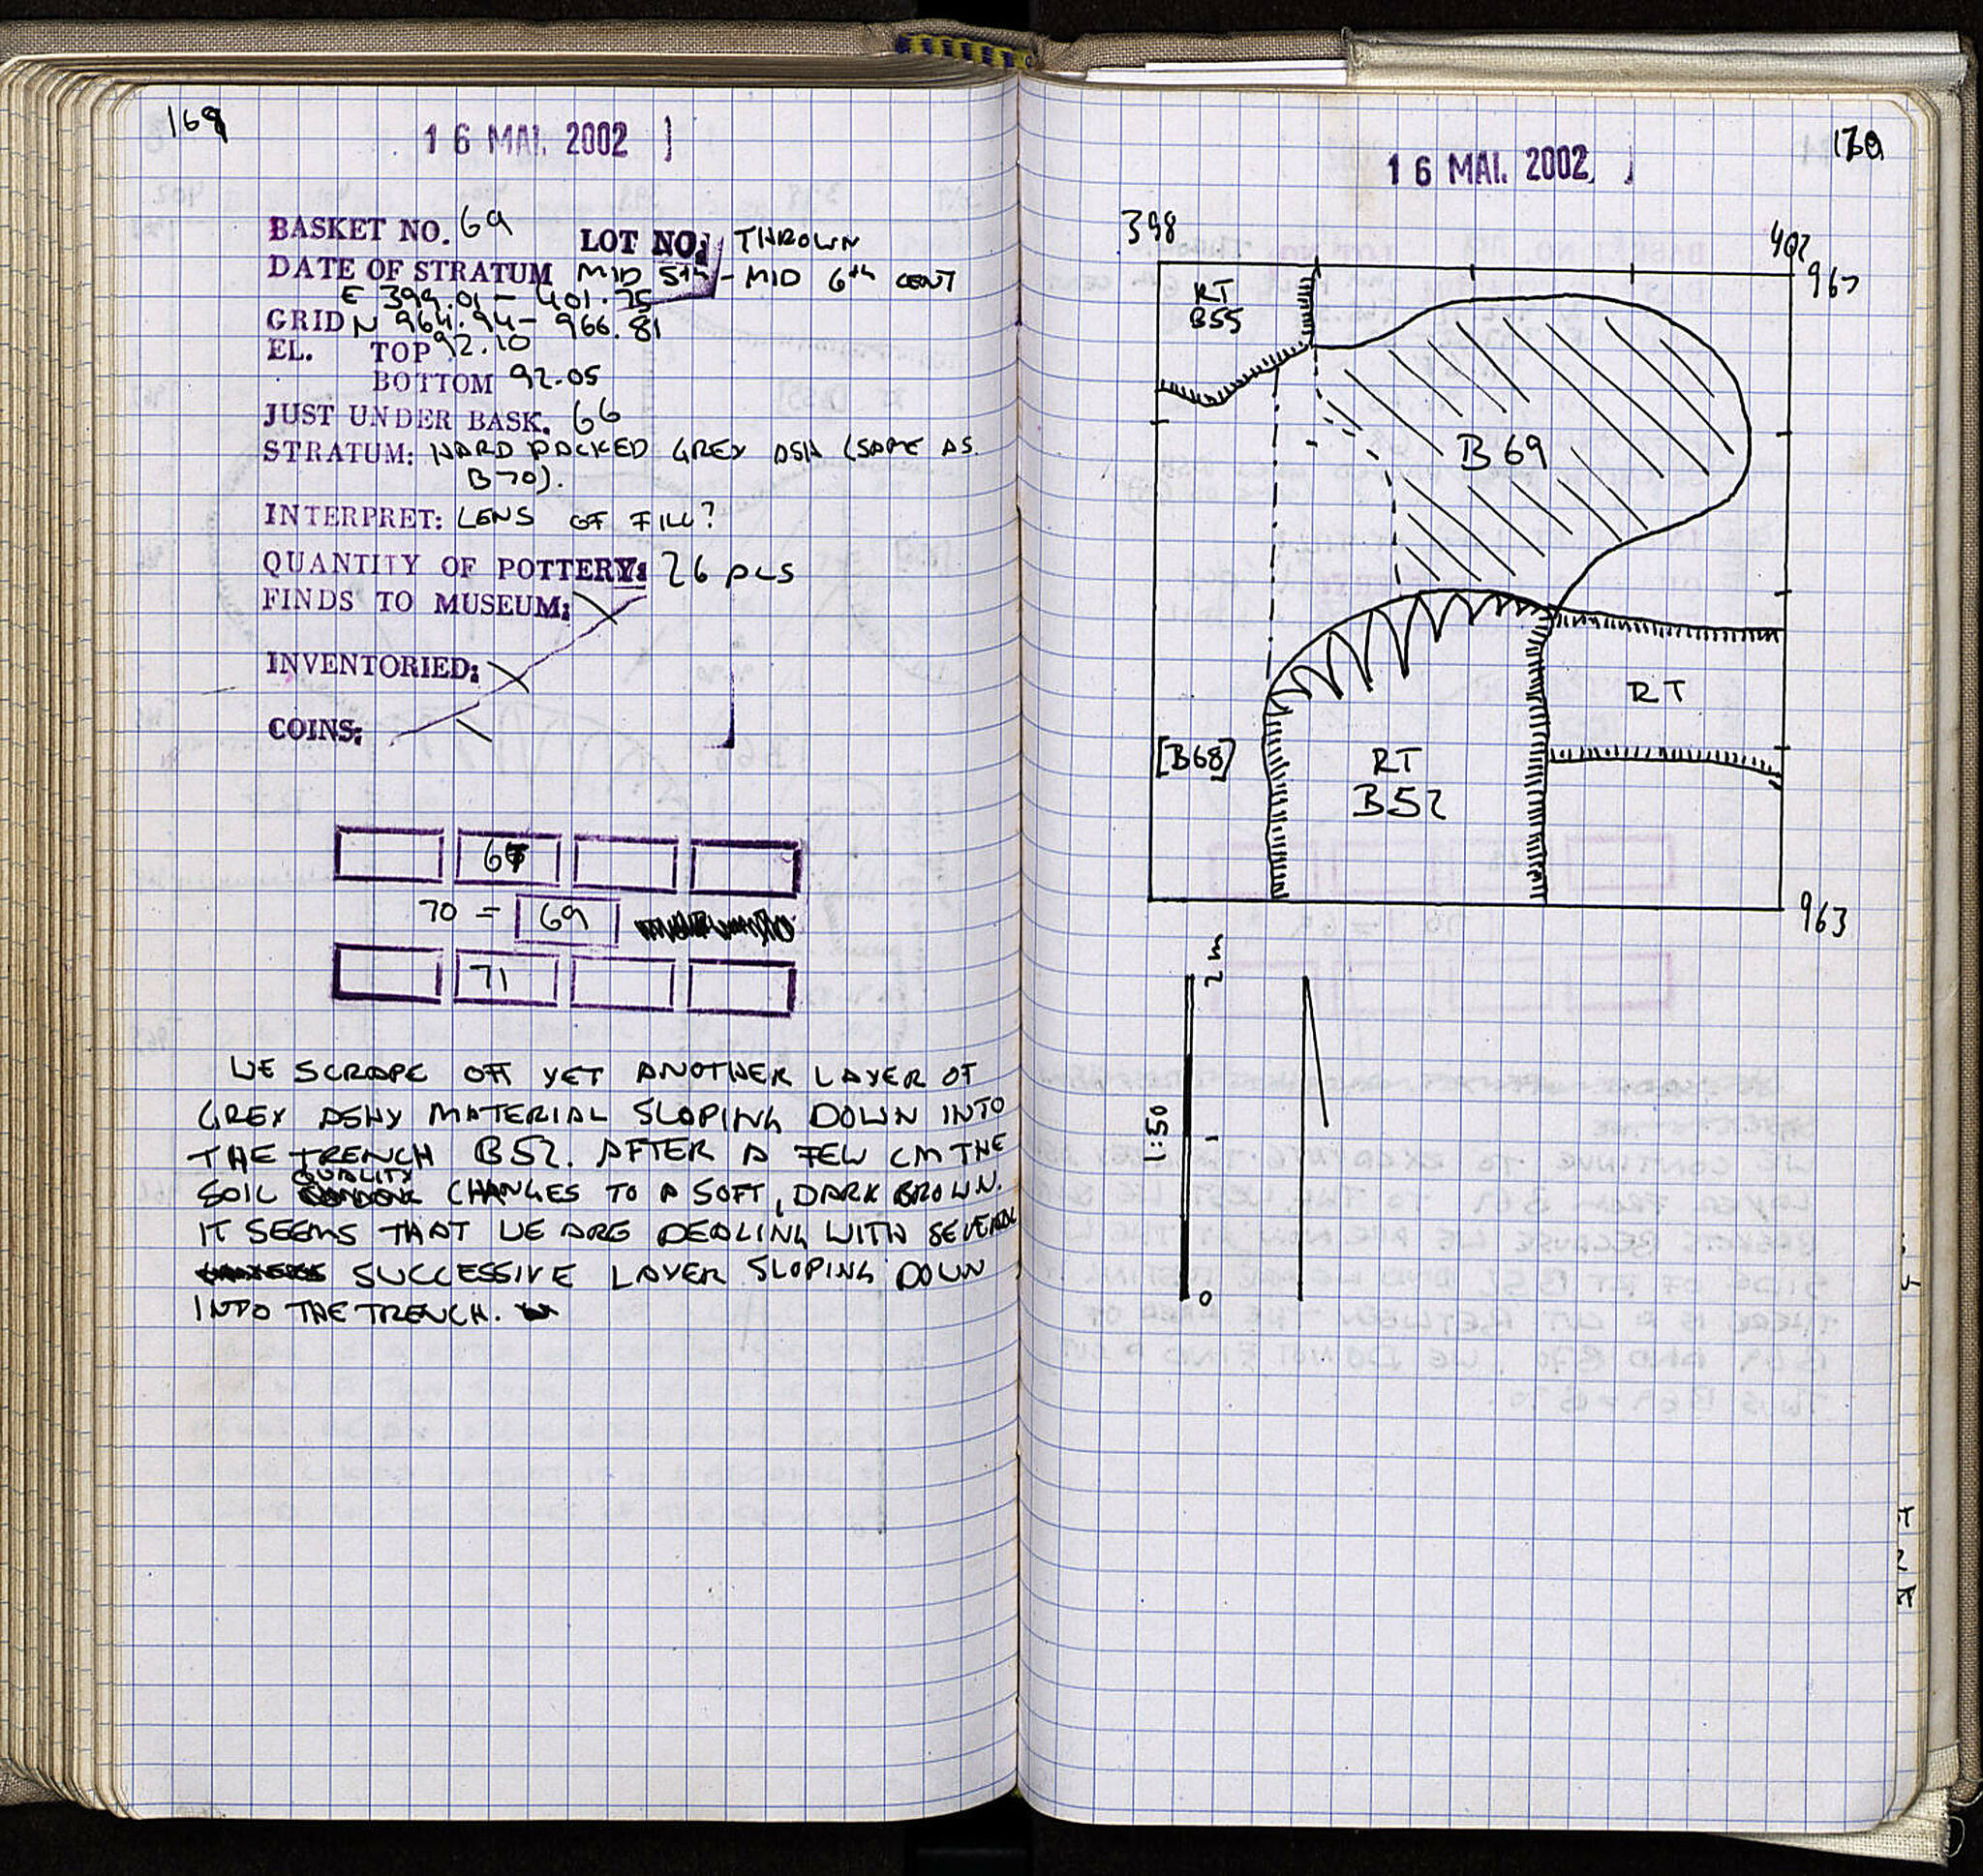 169
16 MAI. 2002
BASKET NO. 69 LOT NO: THROWN
DATE OF STRATUM MID 5th - MID 6th CENT
E 399.01 - 401.75
GRID N 964.94 - 966.81
EL. TOP 92.10
BOTTOM 92.05
JUST UNDER BASK. 66
STRATUM: HARD PACKED GREY ASH (SAME AS
B 70).
INTERPRET: LENS OF FILL?
QUANTITY OF POTTERY: 26 PCS
FINDS TO MUSEUM:
INVENTORIED:
COINS:
70 = 69
71
WE SCRAPE OFF YET ANOTHER LAYER OF
GREY ASHY MATERIAL SLOPING DOWN INTO
THE TRENCH B52. AFTER A FEW CM THE
SOIL QUALITY CHANGES TO A SOFT, DARK BROWN.
IT SEEMS THAT WE ARE DEALING WITH SEVERAL
SUCCESSIVE LAYER SLOPING DOWN
INTO THE TRENCH.
16 MAI. 2002
398
402
967
RT
B55
B69
RT
[B68]
RT
B52
963
2 m
1
1:50
0